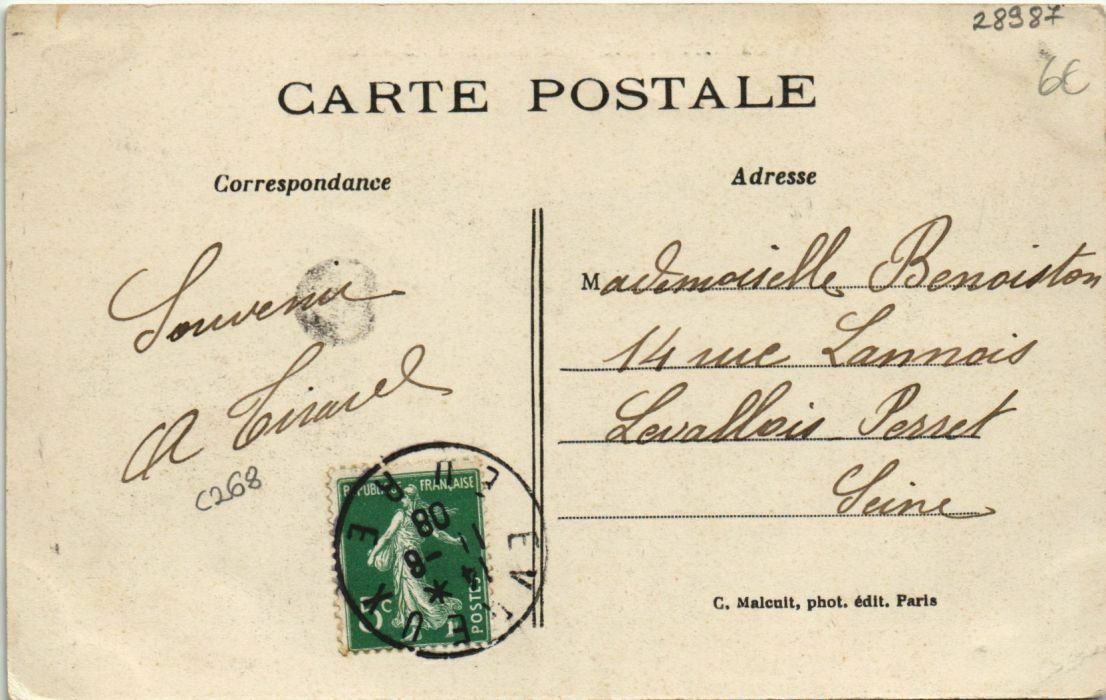 28987
6€
CARTE POSTALE
Correspondance
Adresse
Souvenir
A Tirarel
C268
Mademoiselle Benoiston
14 rue Lannois
Levallois Perret
Seine
RÉPUBLIQUE FRANÇAISE
5c
POSTES
14
8-
08
C. Malcuit, phot. édit. Paris